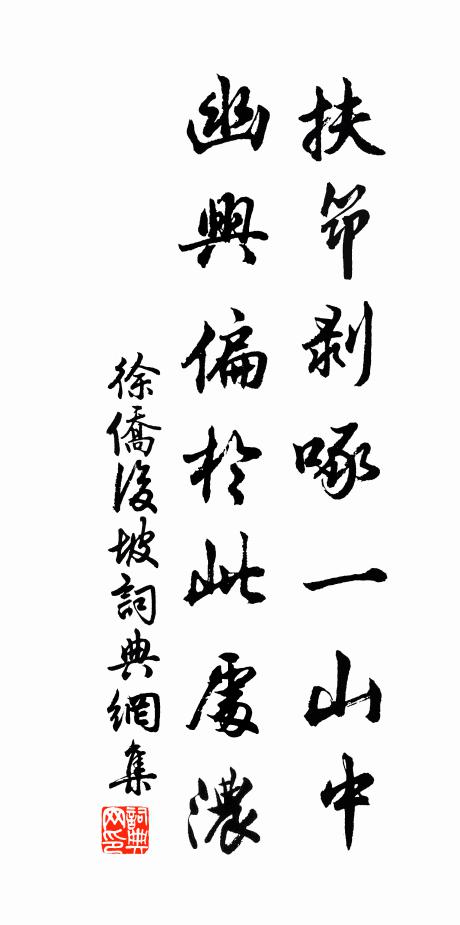 扶笻剥啄一山中
幽興偏於此處濃
徐僑後坡詞典網集
詞典网印